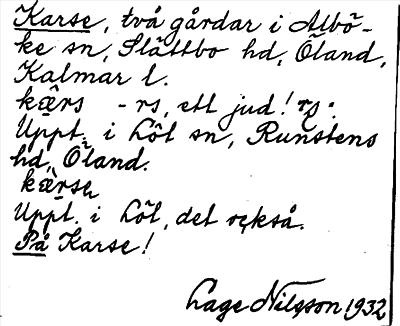 Karse, två gårdar i Albö-
ke sn, Slättbo hd, Öland,
Kalmar l.
kæ̀rs - rs, ett jud! rs:
Uppt. i Löt sn, Runstens
hd, Öland.
kæ̀rsə
Uppt. i Löt, det också.
På Karse!
Lage Nilsson 1932